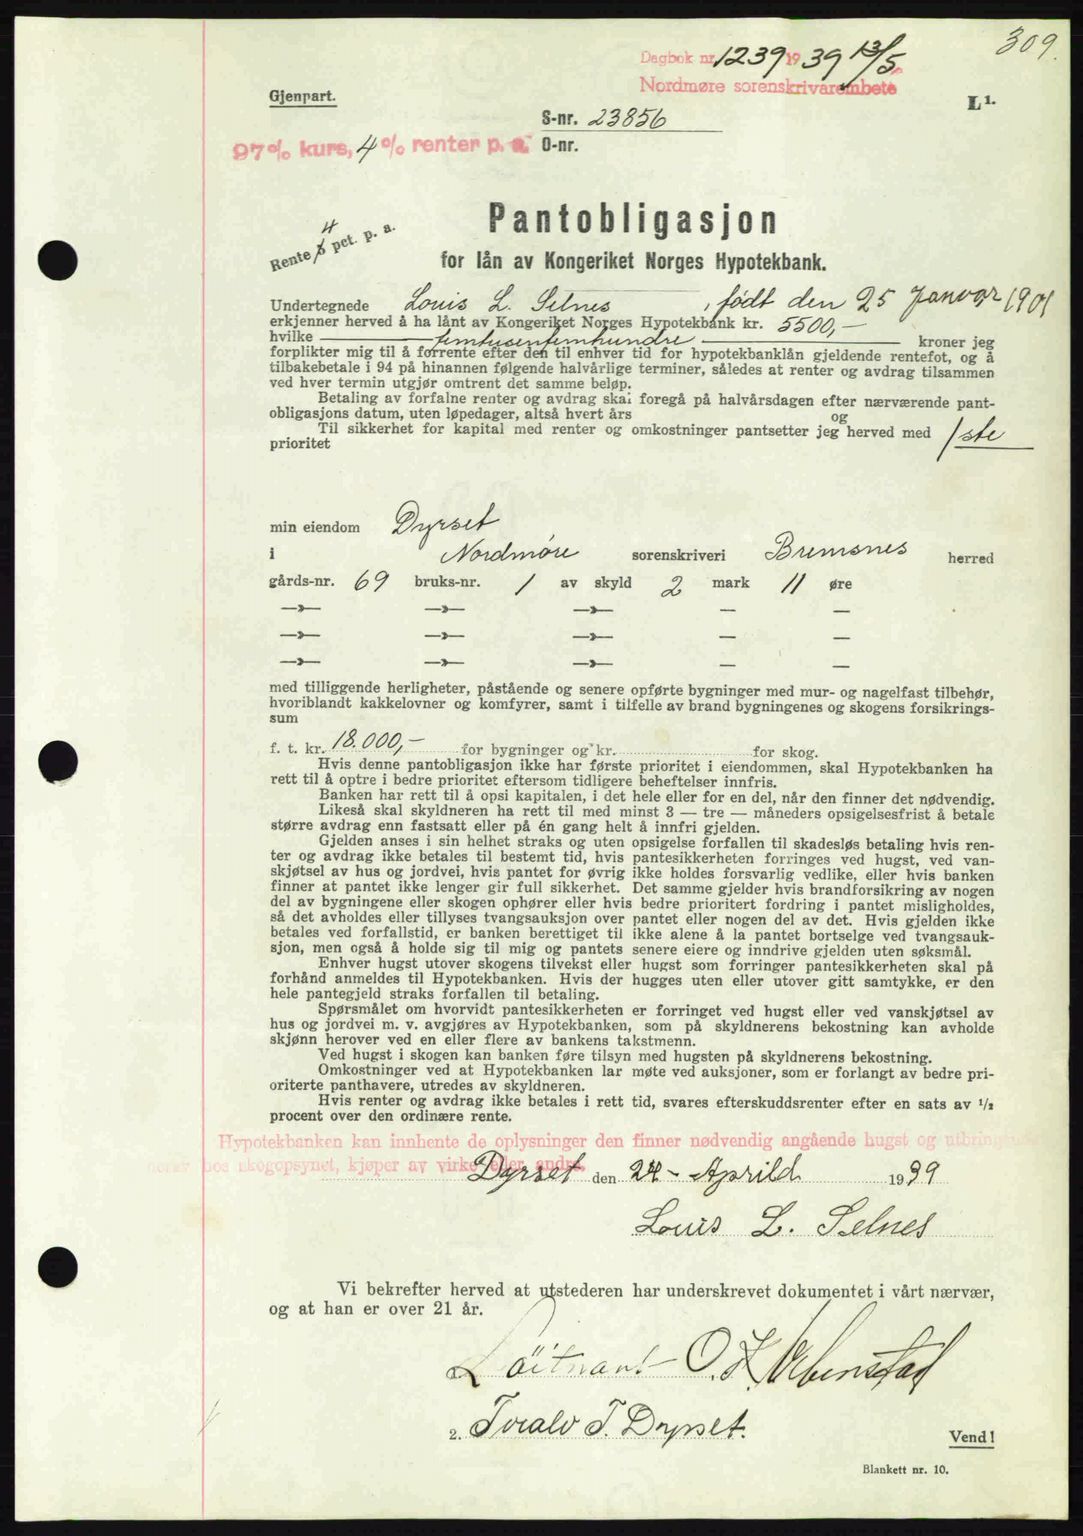 309.
Dagbok nr. 1239 1939 13/5
Nordmøre sorenskrivarembete
Gjenpart.
L 1.
S-nr. 23856
97% kurs, 4% renter p. a.
O-nr.
Pantobligasjon
4
Rente 5 pct. p. a.
for lån av Kongeriket Norges Hypotekbank.
Undertegnede Louis L. Selnes, født den 25 Januar 1901
erkjenner herved å ha lånt av Kongeriket Norges Hypotekbank kr. 5500,-
hvilke femtusenfemhundre kroner jeg
forplikter mig til å forrente efter den til enhver tid for hypotekbanklån gjeldende rentefot, og å
tilbakebetale i 94 på hinannen følgende halvårlige terminer, således at renter og avdrag tilsammen
ved hver termin utgjør omtrent det samme beløp.
Betaling av forfalne renter og avdrag skal foregå på halvårsdagen efter nærværende pant-
obligasjons datum, uten løpedager, altså hvert års og
Til sikkerhet for kapital med renter og omkostninger pantsetter jeg herved med 1ste
prioritet
min eiendom Dyrset
i Nordmøre sorenskriveri Bremsnes herred
gårds-nr. 69 bruks-nr. 1 av skyld 2 mark 11 øre
—»— —»— —»— — —
—»— —»— —»— — —
—»— —»— —»— — —
med tilliggende herligheter, påstående og senere opførte bygninger med mur- og nagelfast tilbehør,
hvoriblandt kakkelovner og komfyrer, samt i tilfelle av brand bygningenes og skogens forsikrings-
sum
f. t. kr. 18.000,- for bygninger og kr. for skog.
Hvis denne pantobligasjon ikke har første prioritet i eiendommen, skal Hypotekbanken ha
rett til å optre i bedre prioritet eftersom tidligere beheftelser innfris.
Banken har rett til å opsi kapitalen, i det hele eller for en del, når den finner det nødvendig.
Likeså skal skyldneren ha rett til med minst 3 — tre — måneders opsigelsesfrist å betale
større avdrag enn fastsatt eller på én gang helt å innfri gjelden.
Gjelden anses i sin helhet straks og uten opsigelse forfallen til skadesløs betaling hvis ren-
ter og avdrag ikke betales til bestemt tid, hvis pantesikkerheten forringes ved hugst, ved van-
skjøtsel av hus og jordvei, hvis pantet for øvrig ikke holdes forsvarlig vedlike, eller hvis banken
finner at pantet ikke lenger gir full sikkerhet. Det samme gjelder hvis brandforsikring av nogen
del av bygningene eller skogen ophører eller hvis bedre prioritert fordring i pantet misligholdes,
så det avholdes eller tillyses tvangsauksjon over pantet eller nogen del av det. Hvis gjelden ikke
betales ved forfallstid, er banken berettiget til ikke alene å la pantet bortselge ved tvangsauk-
sjon, men også å holde sig til mig og pantets senere eiere og inndrive gjelden uten søksmål.
Enhver hugst utover skogens tilvekst eller hugst som forringer pantesikkerheten skal på
forhånd anmeldes til Hypotekbanken. Hvis der hugges uten eller utover gitt samtykke, er den
hele pantegjeld straks forfallen til betaling.
Spørsmålet om hvorvidt pantesikkerheten er forringet ved hugst eller ved vanskjøtsel av
hus og jordvei m. v. avgjøres av Hypotekbanken, som på skyldnerens bekostning kan avholde
skjønn herover ved en eller flere av bankens takstmenn.
Ved hugst i skogen kan banken føre tilsyn med hugsten på skyldnerens bekostning.
Omkostninger ved at Hypotekbanken lar møte ved auksjoner, som er forlangt av bedre pri-
oriterte panthavere, utredes av skyldneren.
Hvis renter og avdrag ikke betales i rett tid, svares efterskuddsrenter efter en sats av 1/2
procent over den ordinære rente.
Hypotekbanken kan innhente de oplysninger den finner nødvendig angående hugst og
hos skogopsynet, kjøper av virke eller andre.
Dyrset den 24 - Aprild 1939
Louis L. Selnes
Vi bekrefter herved at utstederen har underskrevet dokumentet i vårt nærvær,
og at han er over 21 år.
Löitnant O. K.
2. Toralv T. Dyrset.
Vend!
Blankett nr. 10.